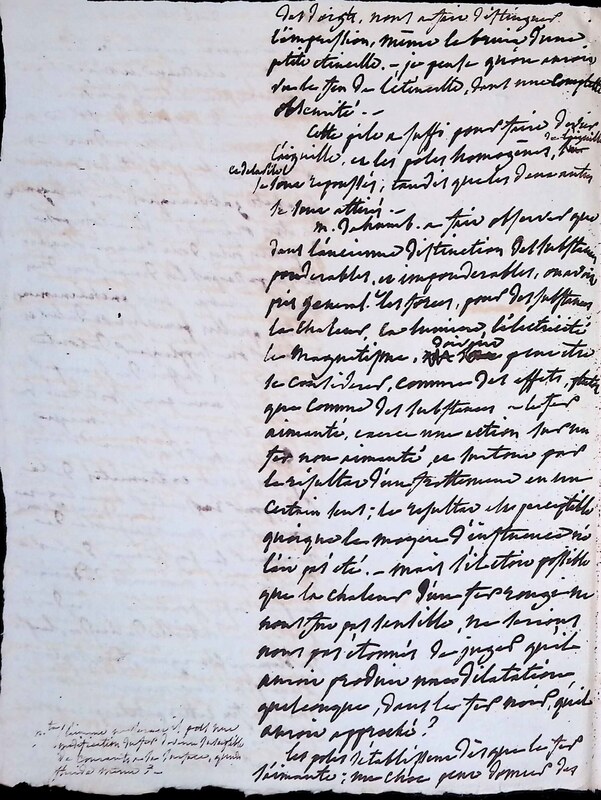 des doigts, nous a fait distinguer
l'impression, même le bruit d'une
petite étincelle. - je pense qu'on auroit
vu le feu de l'étincelle, dans une complette
obscurité. -
Cette pile a suffi pour faire
l'aiguille. et les poles homogènes,
se sont repoussés; tandis que les deux autres
se sont attirés. -
m. a fait observer que
dans l'ancienne distinction des substances
pondérables, et impondérables, on avoit
pris general.t les forces, pour des substances
la chaleur, la lumiere, l'électricité
le magnetisme, doivent peut etre
se considerer, comme des effets, plutôt
que comme des substances - le fer
aimanté, exerce une action sur un
fer non aimanté, et surtout par
le résultat d'un frottement en un
certain sens; le resultat est perceptible
quoique le moyen d'influence ne
l'ait pas été. - mais s'il étoit possible
que la chaleur d'un fer rouge ne
nous fut pas sensible, ne serions
nous pas étonnés de juger qu'il
auroit produit une dilatation
quelconque, dans le fer noir, qu'il
auroit approché?
les poles s'établissent dès que le fer
s'aimante; un choc peut donner des
modification du fer
de courants a la surface,